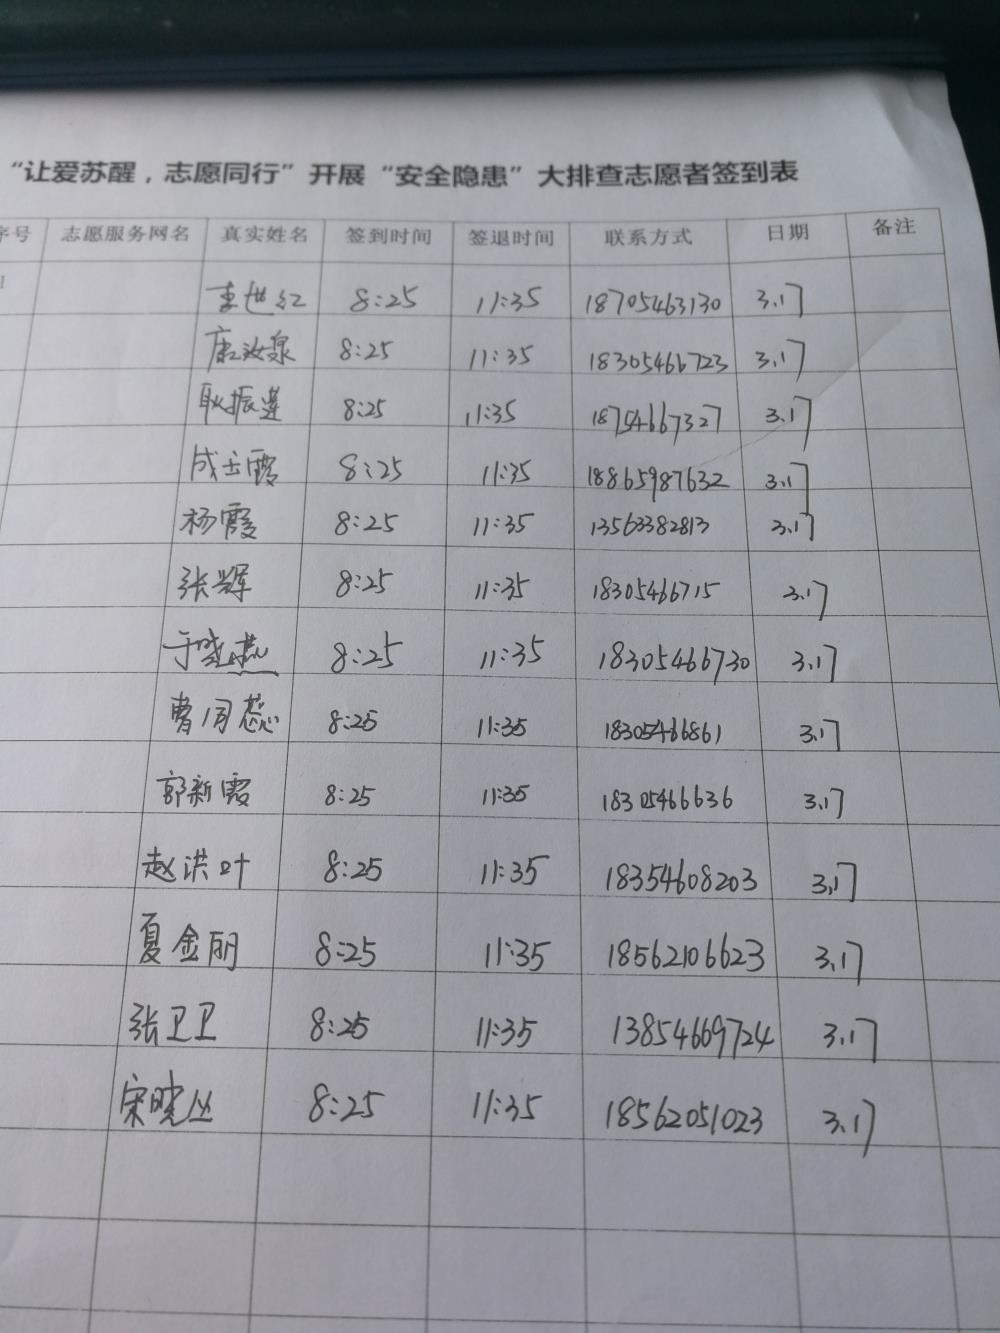 “让爱苏醒，志愿同行”开展“安全隐患”大排查志愿者签到表
序号 志愿服务网名 真实姓名 签到时间 签退时间 联系方式 日期 备注
1 李世红 8:25 11:35 18705463130 3.17
唐汝泉 8:25 11:35 18305466723 3.17
耿振莲 8:25 11:35 18754667327 3.17
成云霞 8:25 11:35 18865987632 3.17
杨霞 8:25 11:35 13563382813 3.17
张辉 8:25 11:35 18305466715 3.17
于晓燕 8:25 11:35 18305466730 3.17
曹同蕊 8:25 11:35 18305466861 3.17
郭新霞 8:25 11:35 18305466636 3.17
赵洪叶 8:25 11:35 18354608203 3.17
夏金丽 8:25 11:35 18562106623 3.17
张卫卫 8:25 11:35 13854669724 3.17
宋晓丛 8:25 11:35 18562051023 3.17